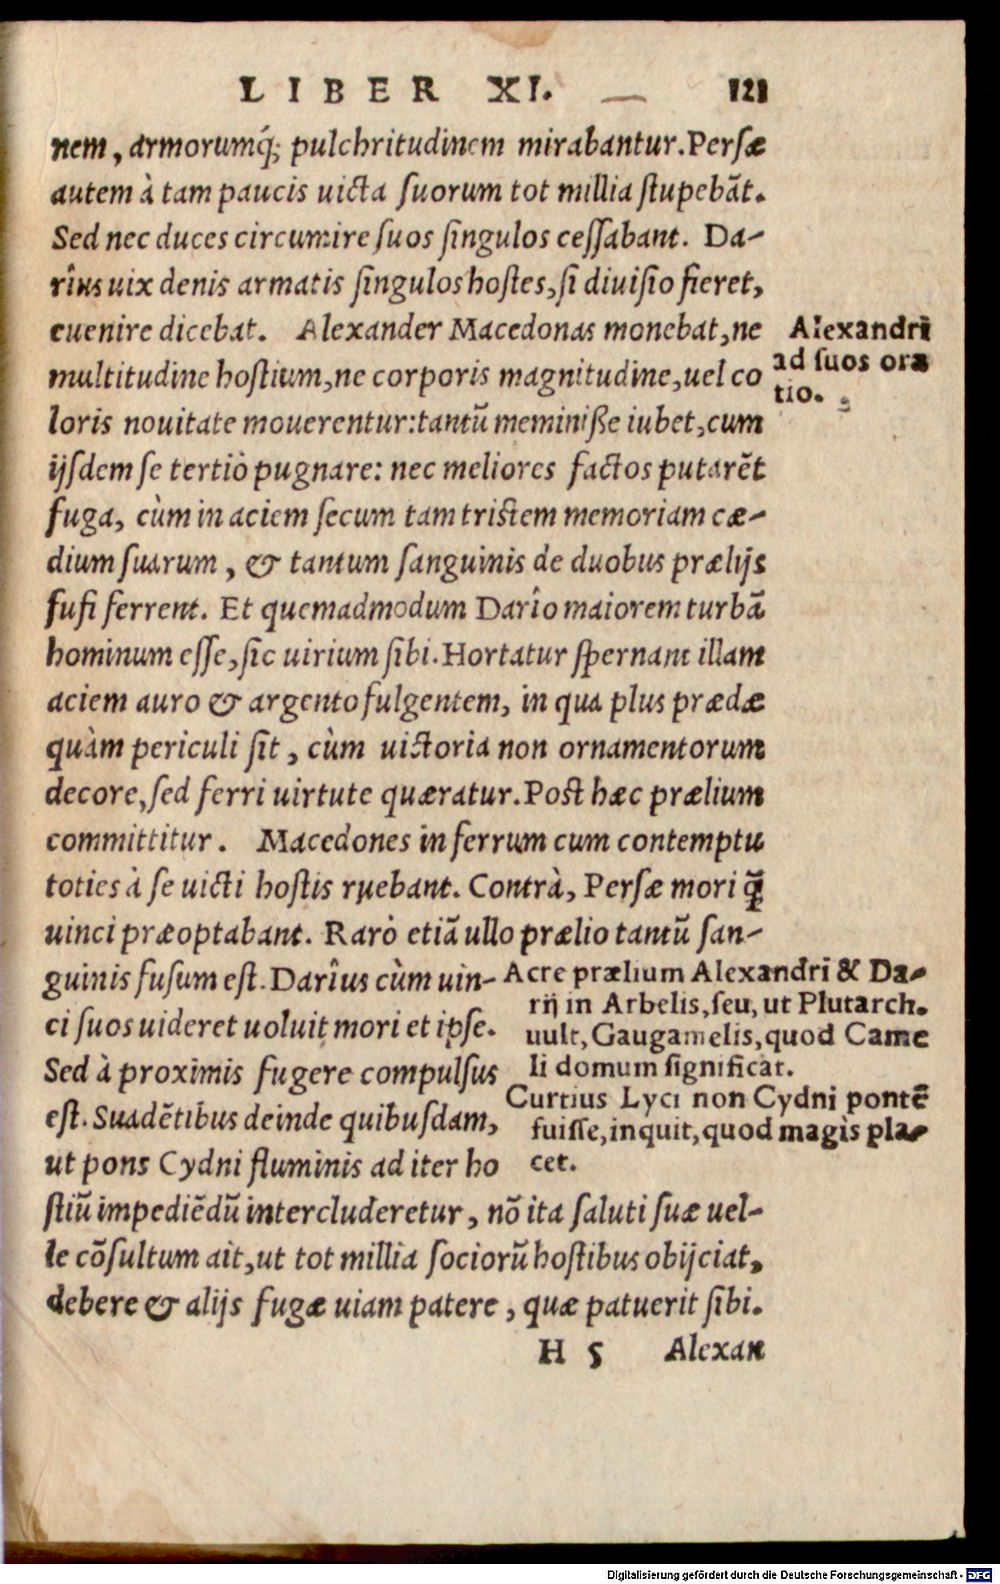 LIBER XI. 121
nem, armorumq́; pulchritudinem mirabantur. Persæ
autem à tam paucis uicta ſuorum tot millia ſtupebãt.
Sed nec duces circumire ſuos ſingulos ceſſabant. Da-
rîus uix denis armatis ſingulos hoſtes, ſi diuiſio fieret,
euenire dicebat. Alexander Macedonas monebat, ne
multitudine hoſtium, ne corporis magnitudine, uel co
loris nouitate mouerentur: tantũ meminiſſe iubet, cum
ijſdem ſe tertiò pugnare: nec meliores factos putarẽt
fuga, cùm in aciem ſecum tam triſtem memoriam cæ-
dium ſuarum, & tantum ſanguinis de duobus prælijs
fuſi ferrent. Et quemadmodum Darîo maiorem turbã
hominum eſſe, ſic uirium ſibi. Hortatur ſpernant illam
aciem auro & argento fulgentem, in qua plus prædæ
quàm periculi ſit, cùm uictoria non ornamentorum
decore, ſed ferri uirtute quæratur. Poſt hæc prælium
committitur. Macedones in ferrum cum contemptu
toties à ſe uicti hoſtis ruebant. Contrà, Perſæ mori q̃
uinci præoptabant. Rarò etiã ullo prælio tantũ ſan-
guinis fuſum eſt. Darîus cùm uin-
ci ſuos uideret uoluit mori et ipſe.
Sed à proximis fugere compulſus
eſt. Suadẽtibus deinde quibuſdam,
ut pons Cydni fluminis ad iter ho
ſtiũ impediẽdũ intercluderetur, nõ ita ſaluti ſuæ uel-
le cõſultum ait, ut tot millia ſociorũ hoſtibus obijciat,
debere & alijs fugæ uiam patere, quæ patuerit ſibi.
H 5 Alexan
Alexandri
ad ſuos ora
tio.
Acre prælium Alexandri & Da-
rij in Arbelis, ſeu, ut Plutarch.
uult, Gaugamelis, quod Came
li domum ſignificat.
Curtius Lyci non Cydni pontẽ
fuiſſe, inquit, quod magis pla-
cet.
Digitalisierung gefördert durch die Deutsche Forschungsgemeinschaft - DFG